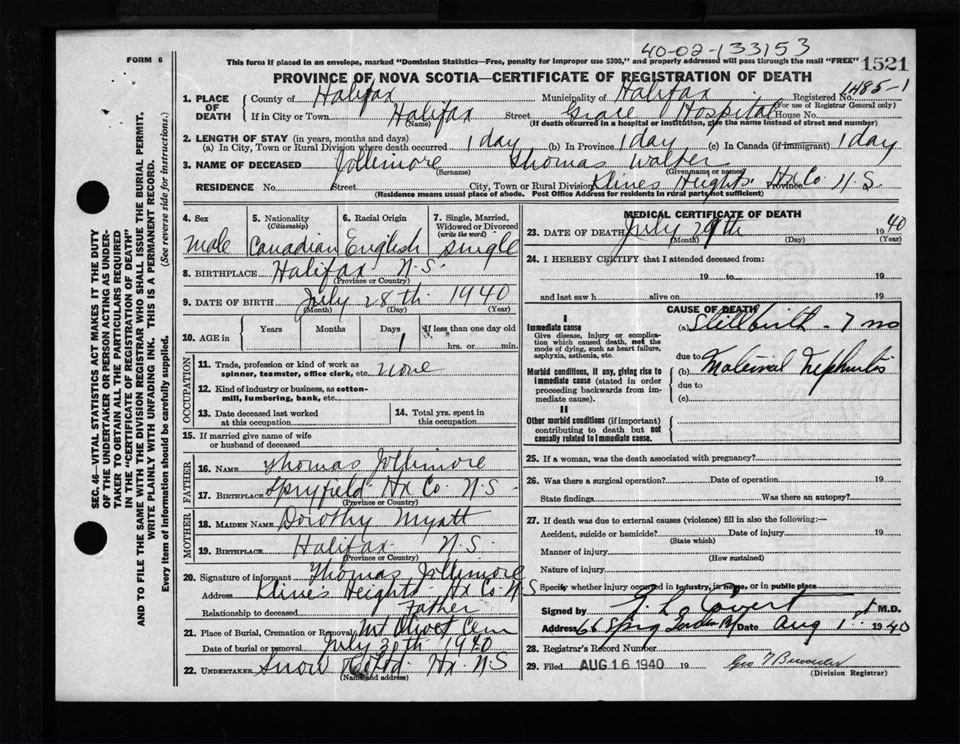 40-02-133153
FORM 6
This form if placed in an envelope, marked "Dominion Statistics—Free, penalty for improper use $300," and properly addressed will pass through the mail "FREE"
1521
PROVINCE OF NOVA SCOTIA—CERTIFICATE OF REGISTRATION OF DEATH
1. PLACE OF DEATH
County of Halifax Municipality of Halifax Registered No. 1485-1
(For use of Registrar General only)
If in City or Town Halifax Street Grace Hospital House No.
(Name) (If death occurred in a hospital or institution, give the name instead of street and number)
2. LENGTH OF STAY (in years, months and days)
(a) In City, Town or Rural Division where death occurred 1 day (b) In Province 1 day (c) In Canada (if immigrant) 1 day
3. NAME OF DECEASED Jollimore Thomas Walter
(Surname) (Given name or names)
RESIDENCE No. Street City, Town or Rural Division Klines Heights Province Hx Co N.S.
(Residence means usual place of abode. Post Office Address for residents in rural parts not sufficient)
4. Sex Male
5. Nationality (Citizenship) Canadian
6. Racial Origin English
7. Single, Married, Widowed or Divorced (write the word) Single
8. BIRTHPLACE Halifax N.S.
(Province or Country)
9. DATE OF BIRTH July 28th 1940
(Month) (Day) (Year)
10. AGE in Years Months Days 1 If less than one day old hrs. or min.
OCCUPATION
11. Trade, profession or kind of work as spinner, teamster, office clerk, etc. None
12. Kind of industry or business, as cotton-mill, lumbering, bank, etc.
13. Date deceased last worked at this occupation
14. Total yrs. spent in this occupation
15. If married give name of wife or husband of deceased
FATHER
16. NAME Thomas Jollimore
17. BIRTHPLACE Spryfield Hx Co. N.S.
(Province or Country)
MOTHER
18. MAIDEN NAME Dorothy Myatt
19. BIRTHPLACE Halifax N.S.
(Province or Country)
20. Signature of informant Thomas Jollimore
Address Klines Heights Hx Co. N.S
Relationship to deceased Father
21. Place of Burial, Cremation or Removal Mt Olivet Cem
Date of burial or removal July 30th 1940
22. UNDERTAKER Snow & Co Ltd. Hx. N.S
(Name and address)
MEDICAL CERTIFICATE OF DEATH
23. DATE OF DEATH July 29th 1940
(Month) (Day) (Year)
24. I HEREBY CERTIFY that I attended deceased from:
19 to 19
and last saw h alive on 19
CAUSE OF DEATH
I
Immediate cause
Give disease, injury or complication which caused death, not the mode of dying, such as heart failure, asphyxia, asthenia, etc.
(a) Stillbirth - 7 mo
due to
Morbid conditions, if any, giving rise to immediate cause (stated in order proceeding backwards from immediate cause).
(b) Maternal Nephritis
due to
(c)
II
Other morbid conditions (if important) contributing to death but not causally related to immediate cause.
25. If a woman, was the death associated with pregnancy?
26. Was there a surgical operation? Date of operation 19
State findings Was there an autopsy?
27. If death was due to external causes (violence) fill in also the following:—
Accident, suicide or homicide? Date of injury 19
(State which)
Manner of injury
(How sustained)
Nature of injury
Specify whether injury occurred in industry, in home, or in public place
Signed by M.D.
Address 66 Spring Garden Rd Date Aug 1st 1940
28. Registrar's Record Number
29. Filed AUG 16 1940 19
(Division Registrar)
SEC. 46—VITAL STATISTICS ACT MAKES IT THE DUTY
OF THE UNDERTAKER OR PERSON ACTING AS UNDER-
TAKER TO OBTAIN ALL THE PARTICULARS REQUIRED
IN THE "CERTIFICATE OF REGISTRATION OF DEATH"
AND TO FILE THE SAME WITH THE DIVISION REGISTRAR WHO SHALL ISSUE THE BURIAL PERMIT.
WRITE PLAINLY WITH UNFADING INK. THIS IS A PERMANENT RECORD.
Every item of information should be carefully supplied. (See reverse side for instructions.)